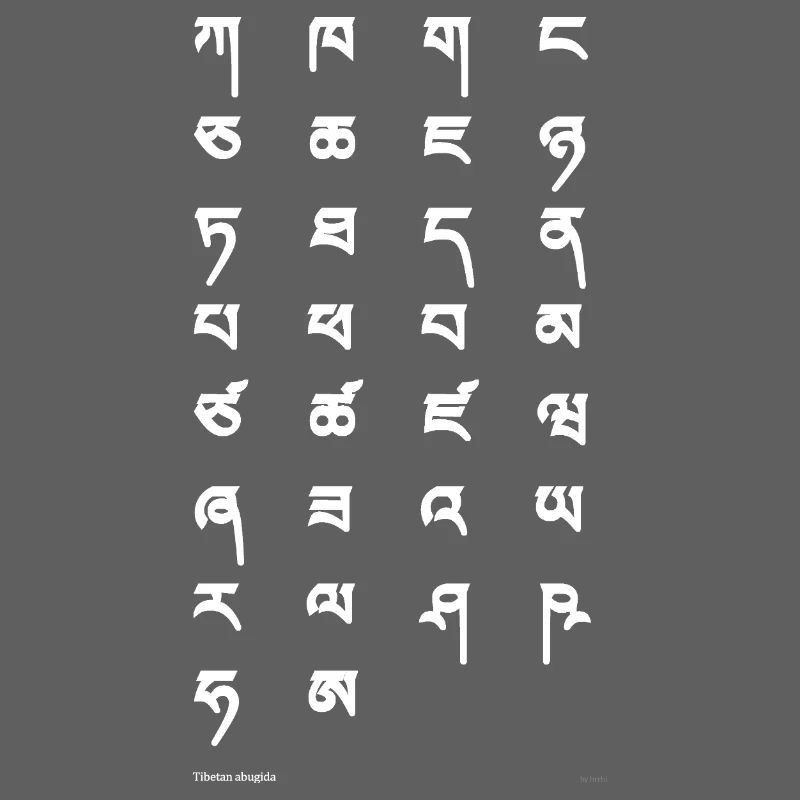 ཀ ཁ ག ང
ཅ ཆ ཇ ཉ
ཏ ཐ ད ན
པ ཕ བ མ
ཙ ཚ ཛ ཝ
ཞ ཟ འ ཡ
ར ལ ཤ ཥ
ཧ ཨ
Tibetan abugida